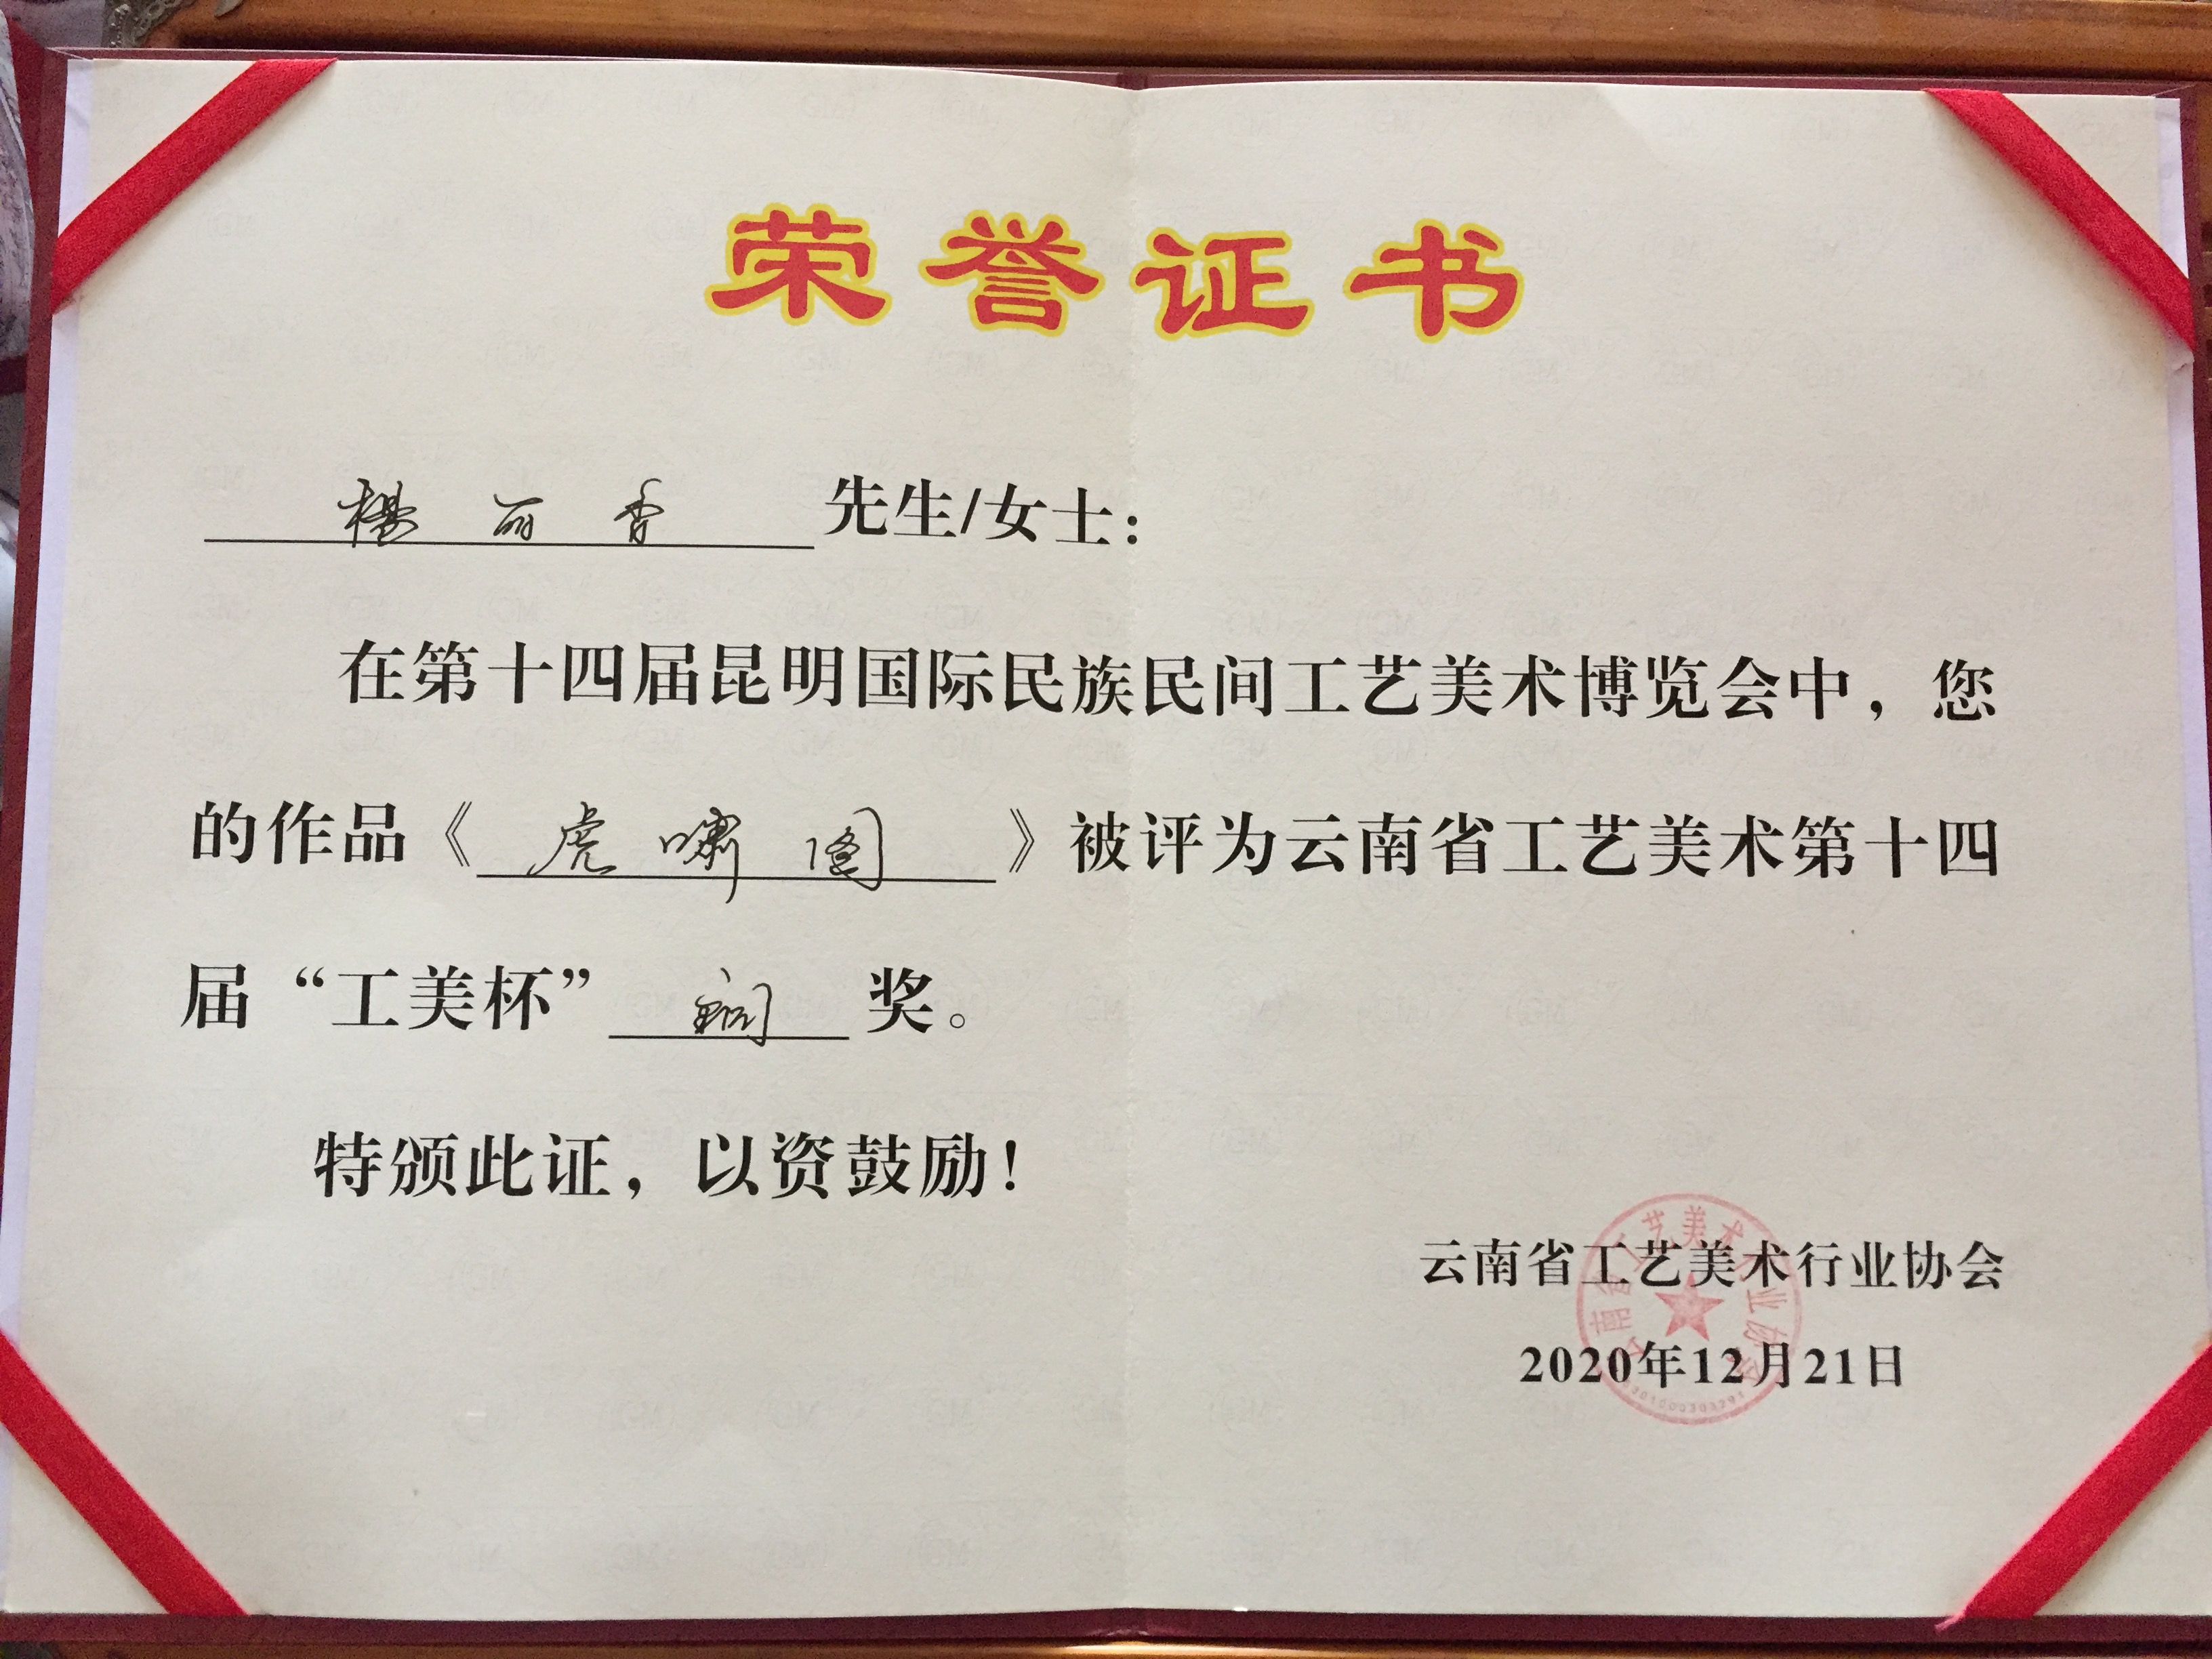 荣誉证书
杨丽香 先生/女士：
在第十四届昆明国际民族民间工艺美术博览会中，您
的作品《虎啸图》被评为云南省工艺美术第十四
届“工美杯” 铜 奖。
特颁此证，以资鼓励！
云南省工艺美术行业协会
2020年12月21日
云南省工艺美术行业协会